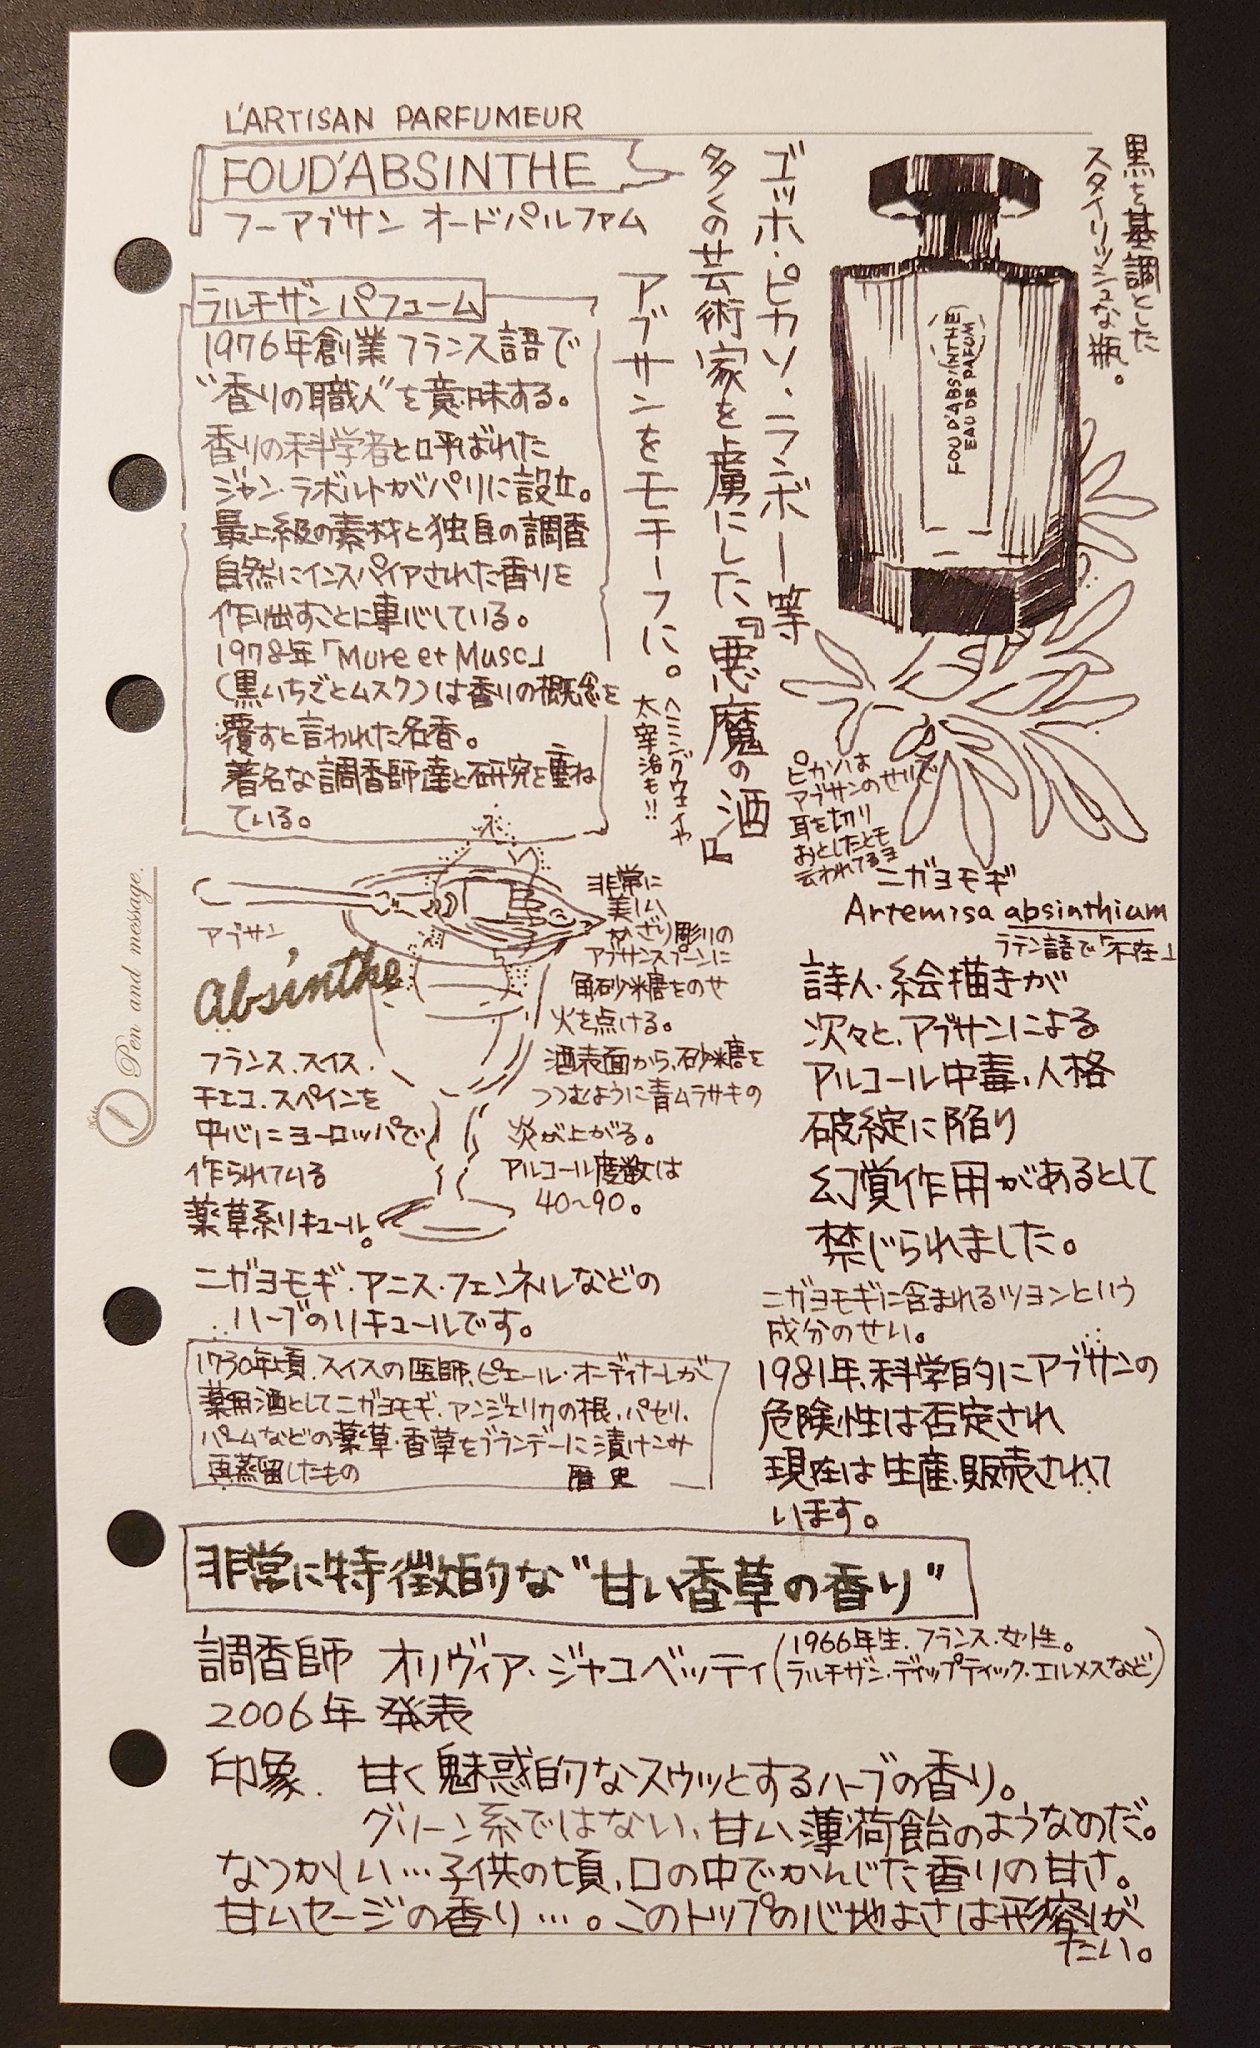 L'ARTISAN PARFUMEUR
FOUD'ABSINTHE
フーアブサン オードパルファム
ゴッホ・ピカソ・ランボー等
多くの芸術家を虜にした『悪魔の酒』
アブサンをモチーフに。
ヘミングウェイや
太宰治も!!
黒を基調とした
スタイリッシュな瓶。
FOU D'ABSINTHE
EAU DE PARFUM
ラルチザンパフューム
1976年創業 フランス語で
"香りの職人"を意味する。
香りの科学者と呼ばれた
ジャン・ラポルトがパリに設立。
最上級の素材と独自の調香
自然にインスパイアされた香りを
作り出すことに専心している。
1978年「Mure et Musc」
(黒いちごとムスク)は香りの概念を
覆すと言われた名香。
著名な調香師達と研究を重ね
ている。
ピカソは
アブサンのせいで
耳を切り
おとしたとも
云われてるヨ
ニガヨモギ
Artemisa absinthium
ラテン語で「不在」
詩人・絵描きが
次々と、アブサンによる
アルコール中毒、人格
破綻に陥り
幻覚作用があるとして
禁じられました。
ニガヨモギに含まれるツヨンという
成分のせい。
1981年、科学的にアブサンの
危険性は否定され
現在は生産、販売されて
います。
アブサン
absinthe
フランス、スイス、
チェコ、スペインを
中心にヨーロッパで
作られている
薬草系リキュール。
非常に
美しい
かざり彫りの
アブサンスプーンに
角砂糖をのせ
火を点ける。
酒表面から、砂糖を
つつむように青ムラサキの
炎が上がる。
アルコール度数は
40〜90。
ニガヨモギ・アニス・フェンネルなどの
ハーブのリキュールです。
1730年頃、スイスの医師、ピエール・オーディナーレが
薬用酒としてニガヨモギ、アンジェリカの根、パセリ、
バームなどの薬草・香草をブランデーに漬けこみ
再蒸留したもの
歴史
非常に特徴的な"甘い香草の香り"
調香師 オリヴィア・ジャコベッティ(1966年生、フランス・女性。
ラルチザン・ディップティック・エルメスなど)
2006年発表
印象. 甘く魅惑的なスウッとするハーブの香り。
グリーン系ではない、甘い薄荷飴のようなのだ。
なつかしい…子供の頃、口の中でかんじた香りの甘さ。
甘いセージの香り…。このトップの心地よさは形容しが
たい。
Pen and message.